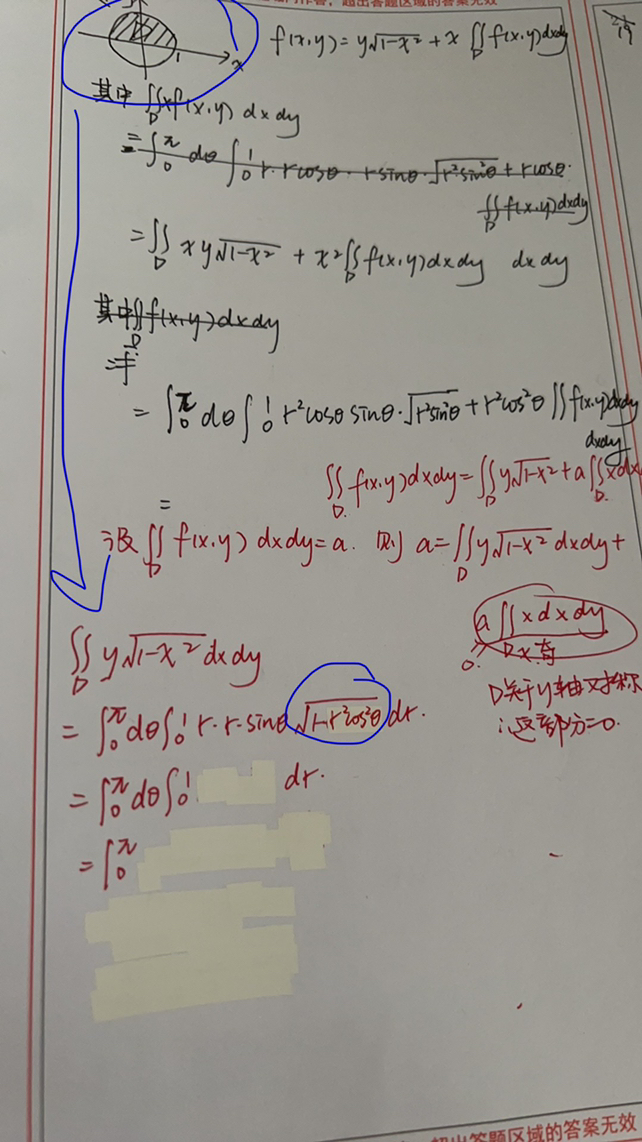 超出答题区域的答案无效
x
1
f(x,y)=y√(1-x²)+x∬_D f(x,y)dxdy
其中 ∬_D xf(x,y) dxdy
=∫₀^π dθ∫₀¹ r·rcosθ·rsinθ·√(r²sin²θ)+rcosθ·
∬_D f(x,y)dxdy
=∬_D xy√(1-x²) + x²∬_D f(x,y)dxdy dxdy
其中∬_D f(x,y)dxdy
=
=∫₀^π dθ∫₀¹ r²cosθsinθ·√(r²sin²θ)+r²cos²θ∬f(x,y)dxdy
dxdy
∬_D f(x,y)dxdy=∬_D y√(1-x²)+a∬_D xdx
=
设∬_D f(x,y)dxdy=a. 则 a=∬_D y√(1-x²)dxdy+
a∬_D xdxdy
0. x奇
D关于y轴对称
∴这部分=0.
∬_D y√(1-x²)dxdy
=∫₀^π dθ∫₀¹ r·r·sinθ√(1-r²cos²θ)dr.
=∫₀^π dθ∫₀¹ dr.
=∫₀^π
超出答题区域的答案无效